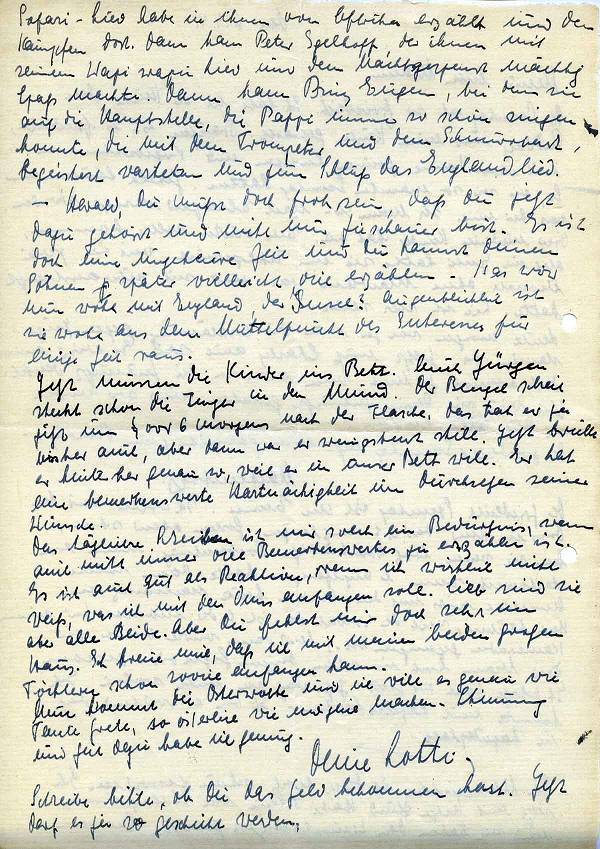 Safari-Lied habe ich ihnen von Afrika erzählt und den
Kämpfen dort. Dann kam Peter Igelhoff, der ihnen mit
seinem Lied und dem Nachtgespenst mächtig
Spaß machte. Dann kam Prinz Eugen, bei dem sie
auf die Hauptstelle, die Pappi immer so schön singen
konnte, die mit dem Trompeter und dem Schnurrbart,
begeistert warteten und zum Schluß das Englandlied.
– Harald, Du mußt doch froh sein, daß Du jetzt
dazu gehörst und nicht nur Zuschauer bist. Es ist
doch eine ungeheure Zeit und Du kannst Deinen
Söhnen später vielleicht viel erzählen. – Was wird
nun wohl mit England, der Insel? Augenblicklich ist
sie wohl aus dem Mittelpunkt des Interesses für
einige Zeit raus.
Jetzt müssen die Kinder ins Bett. Auch Jürgen
steckt schon die Finger in den Mund. Der Bengel schreit
jetzt um 6 morgens nach der Flasche. Das tat er ja
bisher auch, aber dann war er wenigstens stille. Jetzt brüllt
er hinterher genau so, weil er in unser Bett will. Er hat
eine bemerkenswerte Hartnäckigkeit im Durchsetzen seiner
Wünsche.
Das tägliche Schreiben ist mir solch ein Bedürfnis, wenn
auch nicht immer viel Bemerkenswertes zu erzählen ist.
Es ist auch gut als Reaktion, wenn ich wirklich nicht
weiß, was ich mit den anfangen soll. Lieb sind sie
aber alle Beide. Aber Du fehlst mir doch sehr im
Haus. Ich freue mich, daß ich mit meinen beiden großen
Töchtern schon soviel anfangen kann.
Nun kommt die Osterwoche und ich will es genau wie
Tante Grete, so österlich wie möglich machen. Stimmung
und Zeit dazu habe ich genug.
Deine Lotti
Schreibe bitte, ob Du das Geld bekommen hast. Jetzt
darf es ja geschickt werden.